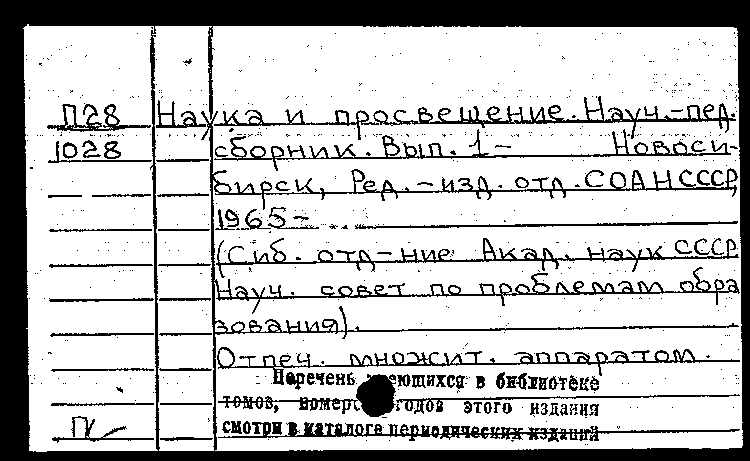 П28 Наука и просвещение. Науч.-пед.
1028 сборник. Вып. 1- Новоси-
бирск, Ред.-изд. отд. СОАНСССР,
1965-
(Сиб. отд-ние Акад. наук СССР
Науч. совет по проблемам обра
зования).
Отпеч. множит. аппаратом.
Перечень в библиотеке
томов, этого издания
смотри в каталоге периодических изданий